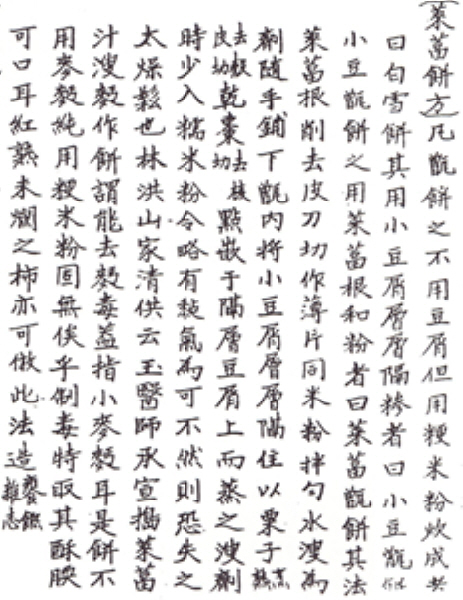 萊葍餠方凡甑餠之不用豆屑但用粳米粉炊成者
曰白雪餠其用小豆屑層層隔糝者曰小豆甑餠
小豆甑餠之用萊葍根和粉者曰萊葍甑餠其法
萊葍根削去皮刀切作薄片同米粉拌勻水溲爲
劑隨手鋪下甑內將小豆屑層層隔住以栗子
去殼皮切乾棗去核切點嵌于隔層豆屑上而蒸之溲劑
時少入糯米粉令略有黏氣爲可不然則恐失之
太燥鬆也林洪山家清供云玉醫師承宣搗萊葍
汁溲麪作餠謂能去麪毒蓋指小麥麪耳是餠不
用麥麪純用粳米粉固無俟乎制毒特取其酥腴
可口耳紅熟未瀾之柿亦可倣此法造饔𩟔雜志